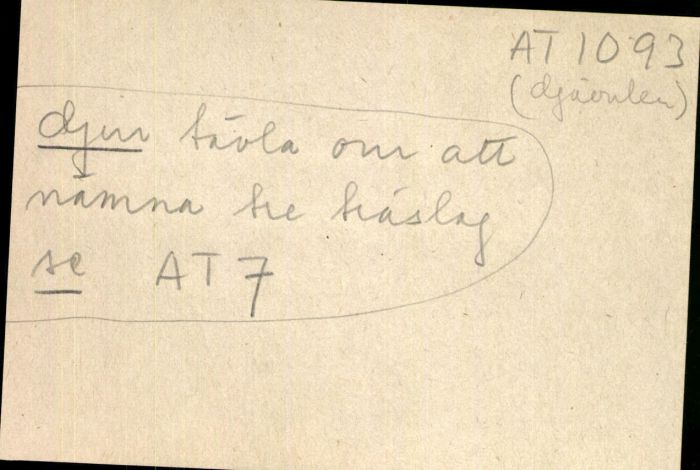 AT 1093
(djävulen)
djur tävla om att
nämna tre träslag
se AT 7